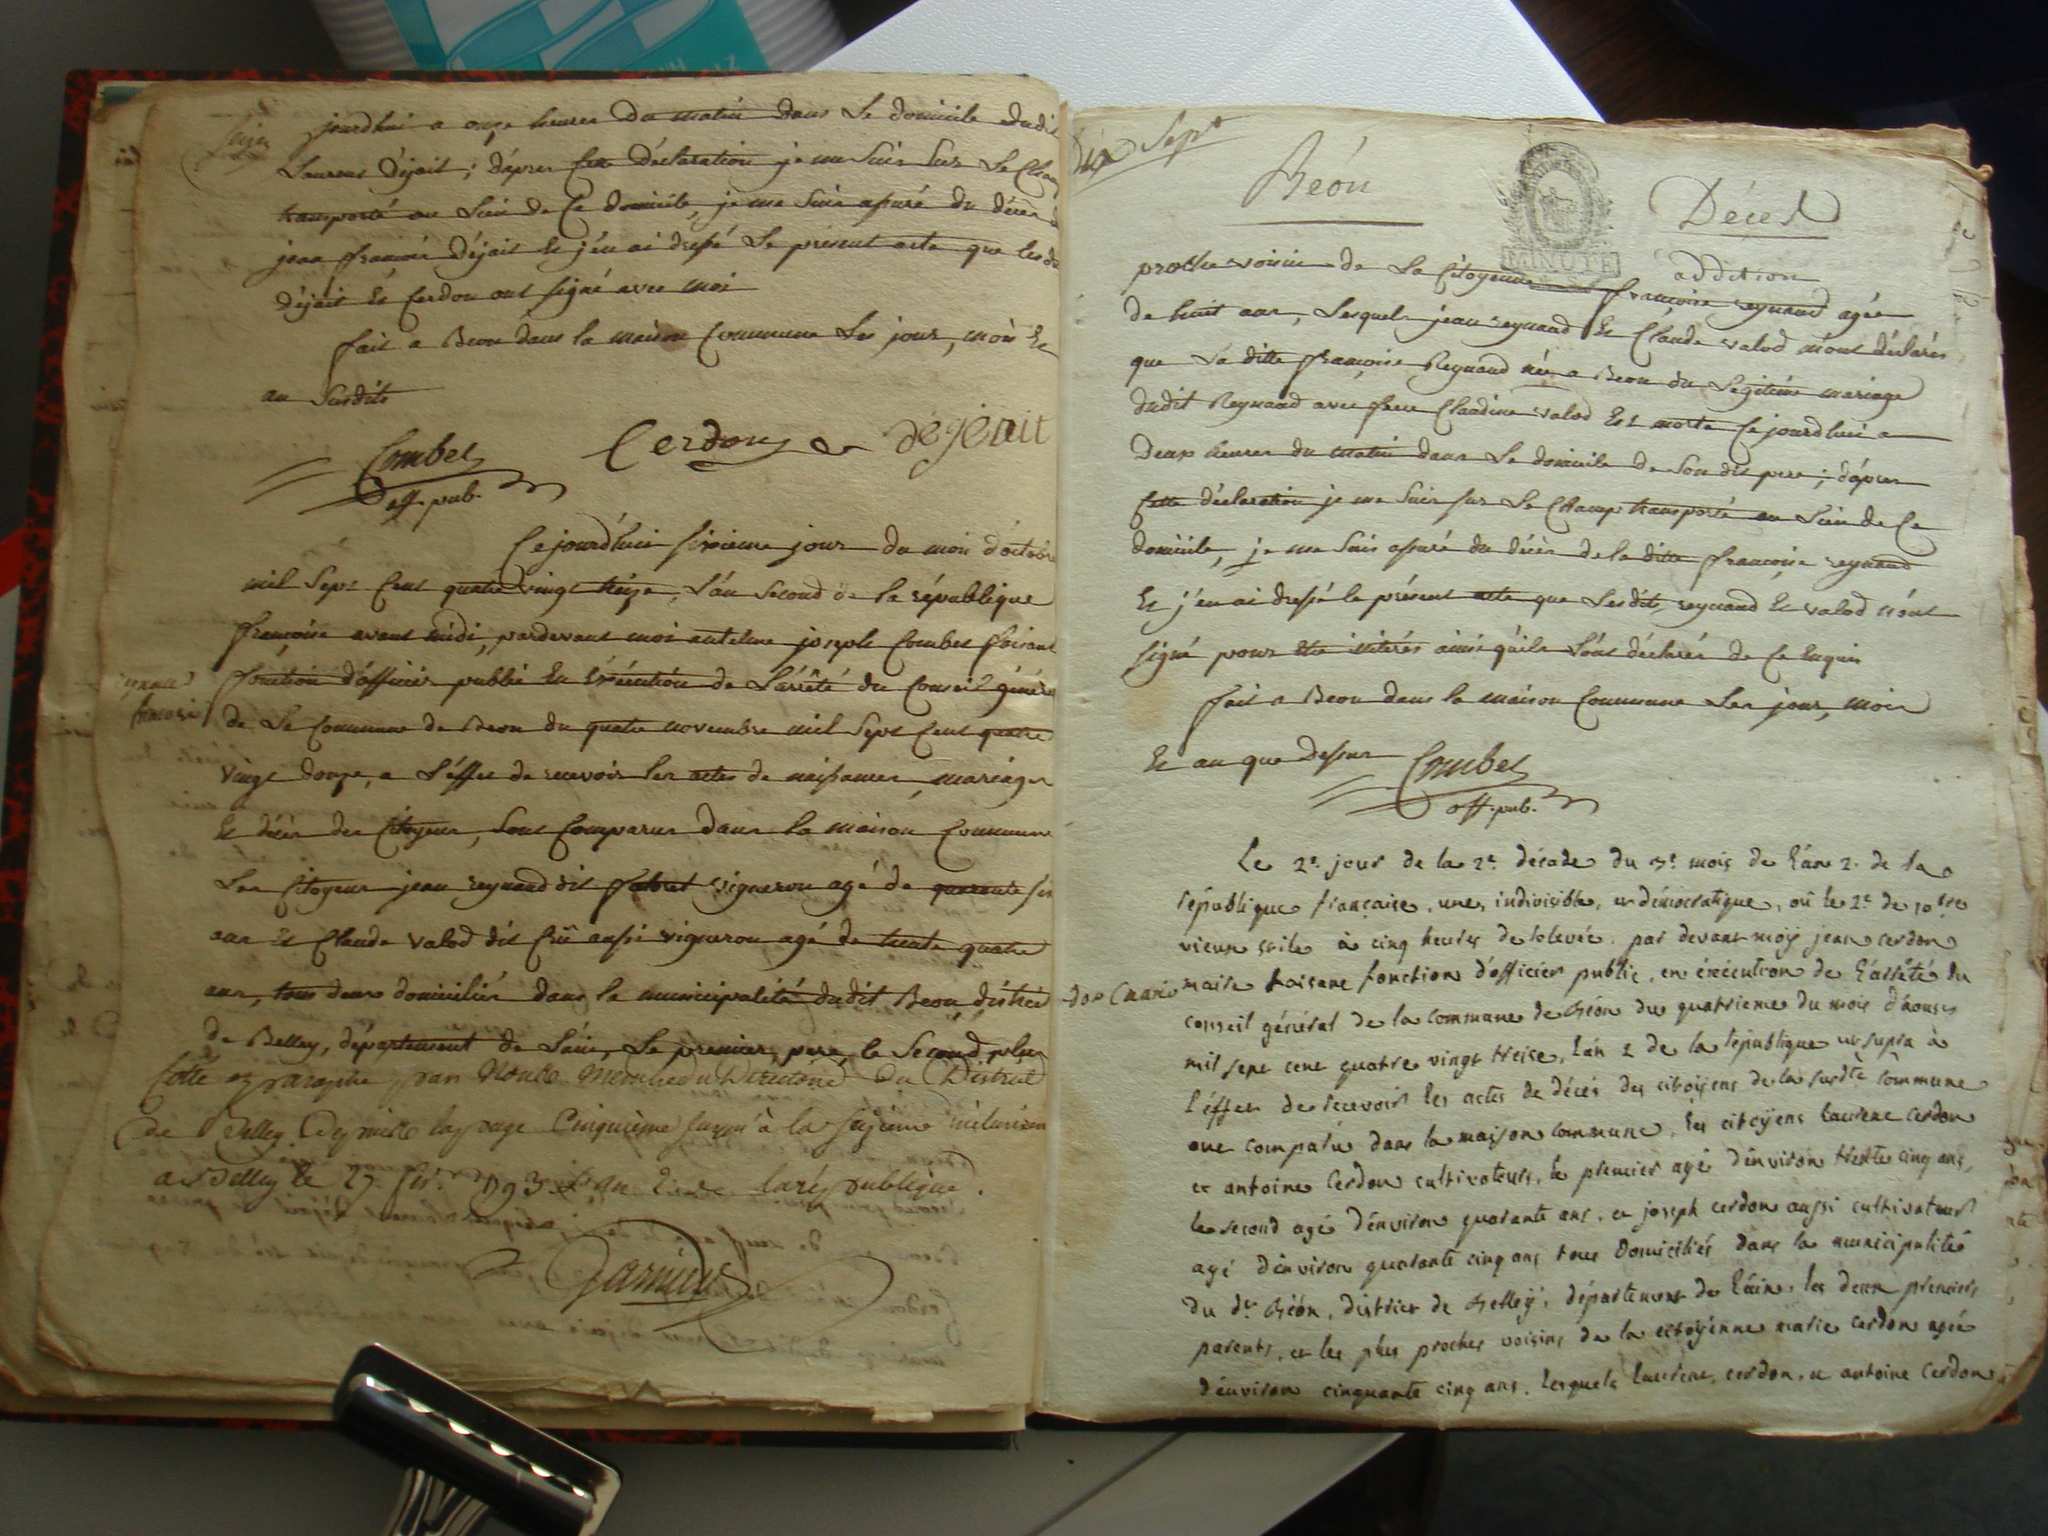 Seize
jourdhui a onze heures du matin dans Le domicile dudit
Laurens Déjait ; dâpres Cette déclaration je me Suis Sur Le Cham
transporté au Lieu de Ce domicile, je me Suis assuré du décès de
jean françois Déjait Et j'en ai dressé Le présent acte que lesdi
Déjait Et Cerdon ont signé avec moi
fait a Beon dans la maison Commune Les jour, mois Et
an Susdits
Combet Cerdon Déjeait
off. pub.
Cejourd'hui sixieme jour du mois d'octobre
mil Sept Cent quatre vingt treize, L'an Second de la république
françoise avant midi, pardevant moi antelme joseph Combet faisant
fonction d'officier public En Exécution de L'arrêté du Conseil généra
reynaud
francoise
de La Commune de Beon du quatre novembre mil Sept Cent quatre
vingt douze, a L'effet de recevoir les actes de naissances, mariages
Et décès des Citoyens, Sont Comparus dans la maison Commune
Les Citoyens jean reynaud dit vigneron agé de quarante six
ans Et Claude valod dit aussi vigneron agé de trente quatre
ans, tous deux domiciliés dans la municipalité dudit Beon, district
de Belley, département de L'ain, Le premier, pere, le Second plus
Cotté et paraphé par Nous Membre du Directoire du District
de Belley Depuis la page Cinquième jusqu'à la seizième inclusivem
a Belley le 27 1793 L'an 2 de la république.
Dix Sept
Béon
Décès
MINUTE
addition
proche voisin de La Citoyenne françoise reynaud agée
de huit ans, Lesquels jean reynaud Et Claude valod m'ont déclarés
que La ditte françoise Reynaud née a Beon du Légitime mariage
dudit Reynaud avec feue Claudine valod Est morte Cejourdhui a
Deux heures du matin dans Le domicile de Son dit pere ; dâpres
Cette déclaration je me Suis sur Le Champ transporté au Lieu de Ce
domicile, je me Suis assuré du décès de la ditte francoise reynaud
Et j'en ai dressé le présent acte que Lesdits reynaud Et valod n'ont
signé pour Etre illiterés ainsi qu'ils L'ont déclarés de Ce Enquis
fait a Beon dans la maison Commune Les jour, mois
Et an que dessus Combet
off. pub.
Le 2e. jour de la 2e. décade du 3e. mois de l'an 2. de la
république française, une, indivisible, et démocratique, où le 2e. de 10bre
vieux stile à cinq heures de relevée. par devant moÿ jean cerdon
maire faisant fonction d'officier public, en éxécution de l'arrêté du
don marie
conseil général de la commune de Béon du quatrieme du mois d'
mil sept cent quatre vingt treize, l'an 2 de la république ut supra à
l'effet de recevoir les actes de décès des citoÿens de la susdte commune
ont comparu dans la maison commune, les citoÿens laurent cerdon
et antoine Cerdon cultivateurs, le premier agé d'environ trente cinq ans,
le second agé d'environ quarante ans, et joseph cerdon aussi cultivateur
agé d'environ quarante cinq ans tous Domiciliés dans la municipalité
du dt. Béon, district de Belleÿ, département de l'ain, les deux premiers
parents, et les plus proches voisins de la citoÿenne marie cerdon agée
d'environ cinquante cinq ans, lesquels laurent, cerdon, et antoine cerdon